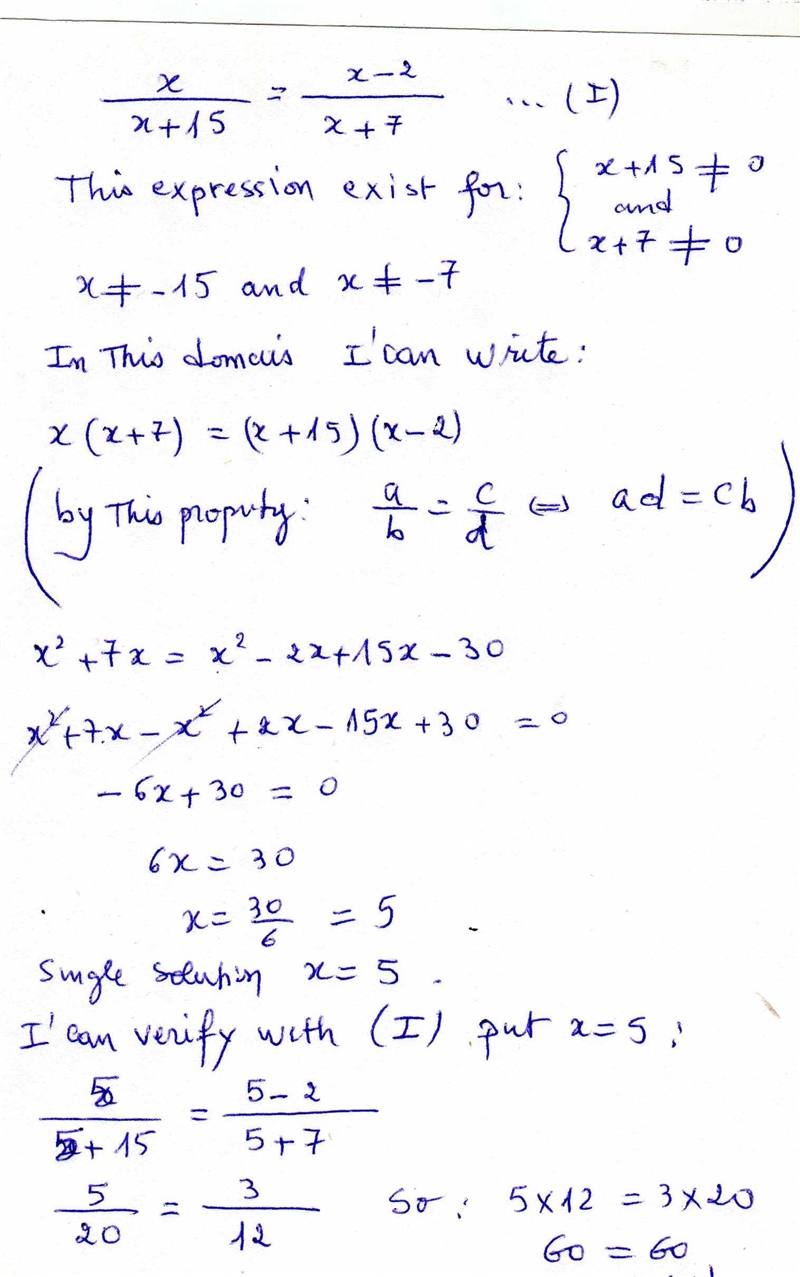 x/(x+15) = (x-2)/(x+7) ... (I)
This expression exist for: { x+15 ≠ 0 and x+7 ≠ 0
x ≠ -15 and x ≠ -7
In This domais I'can write:
x(x+7) = (x+15)(x-2)
(by This property: a/b = c/d ⇔ ad = cb)
x²+7x = x²-2x+15x-30
x²+7x-x²+2x-15x+30 = 0
-6x+30 = 0
6x = 30
x = 30/6 = 5
Single solution x = 5.
I'can verify with (I) put x=5:
5/(5+15) = (5-2)/(5+7)
5/20 = 3/12 So: 5×12 = 3×20
60 = 60